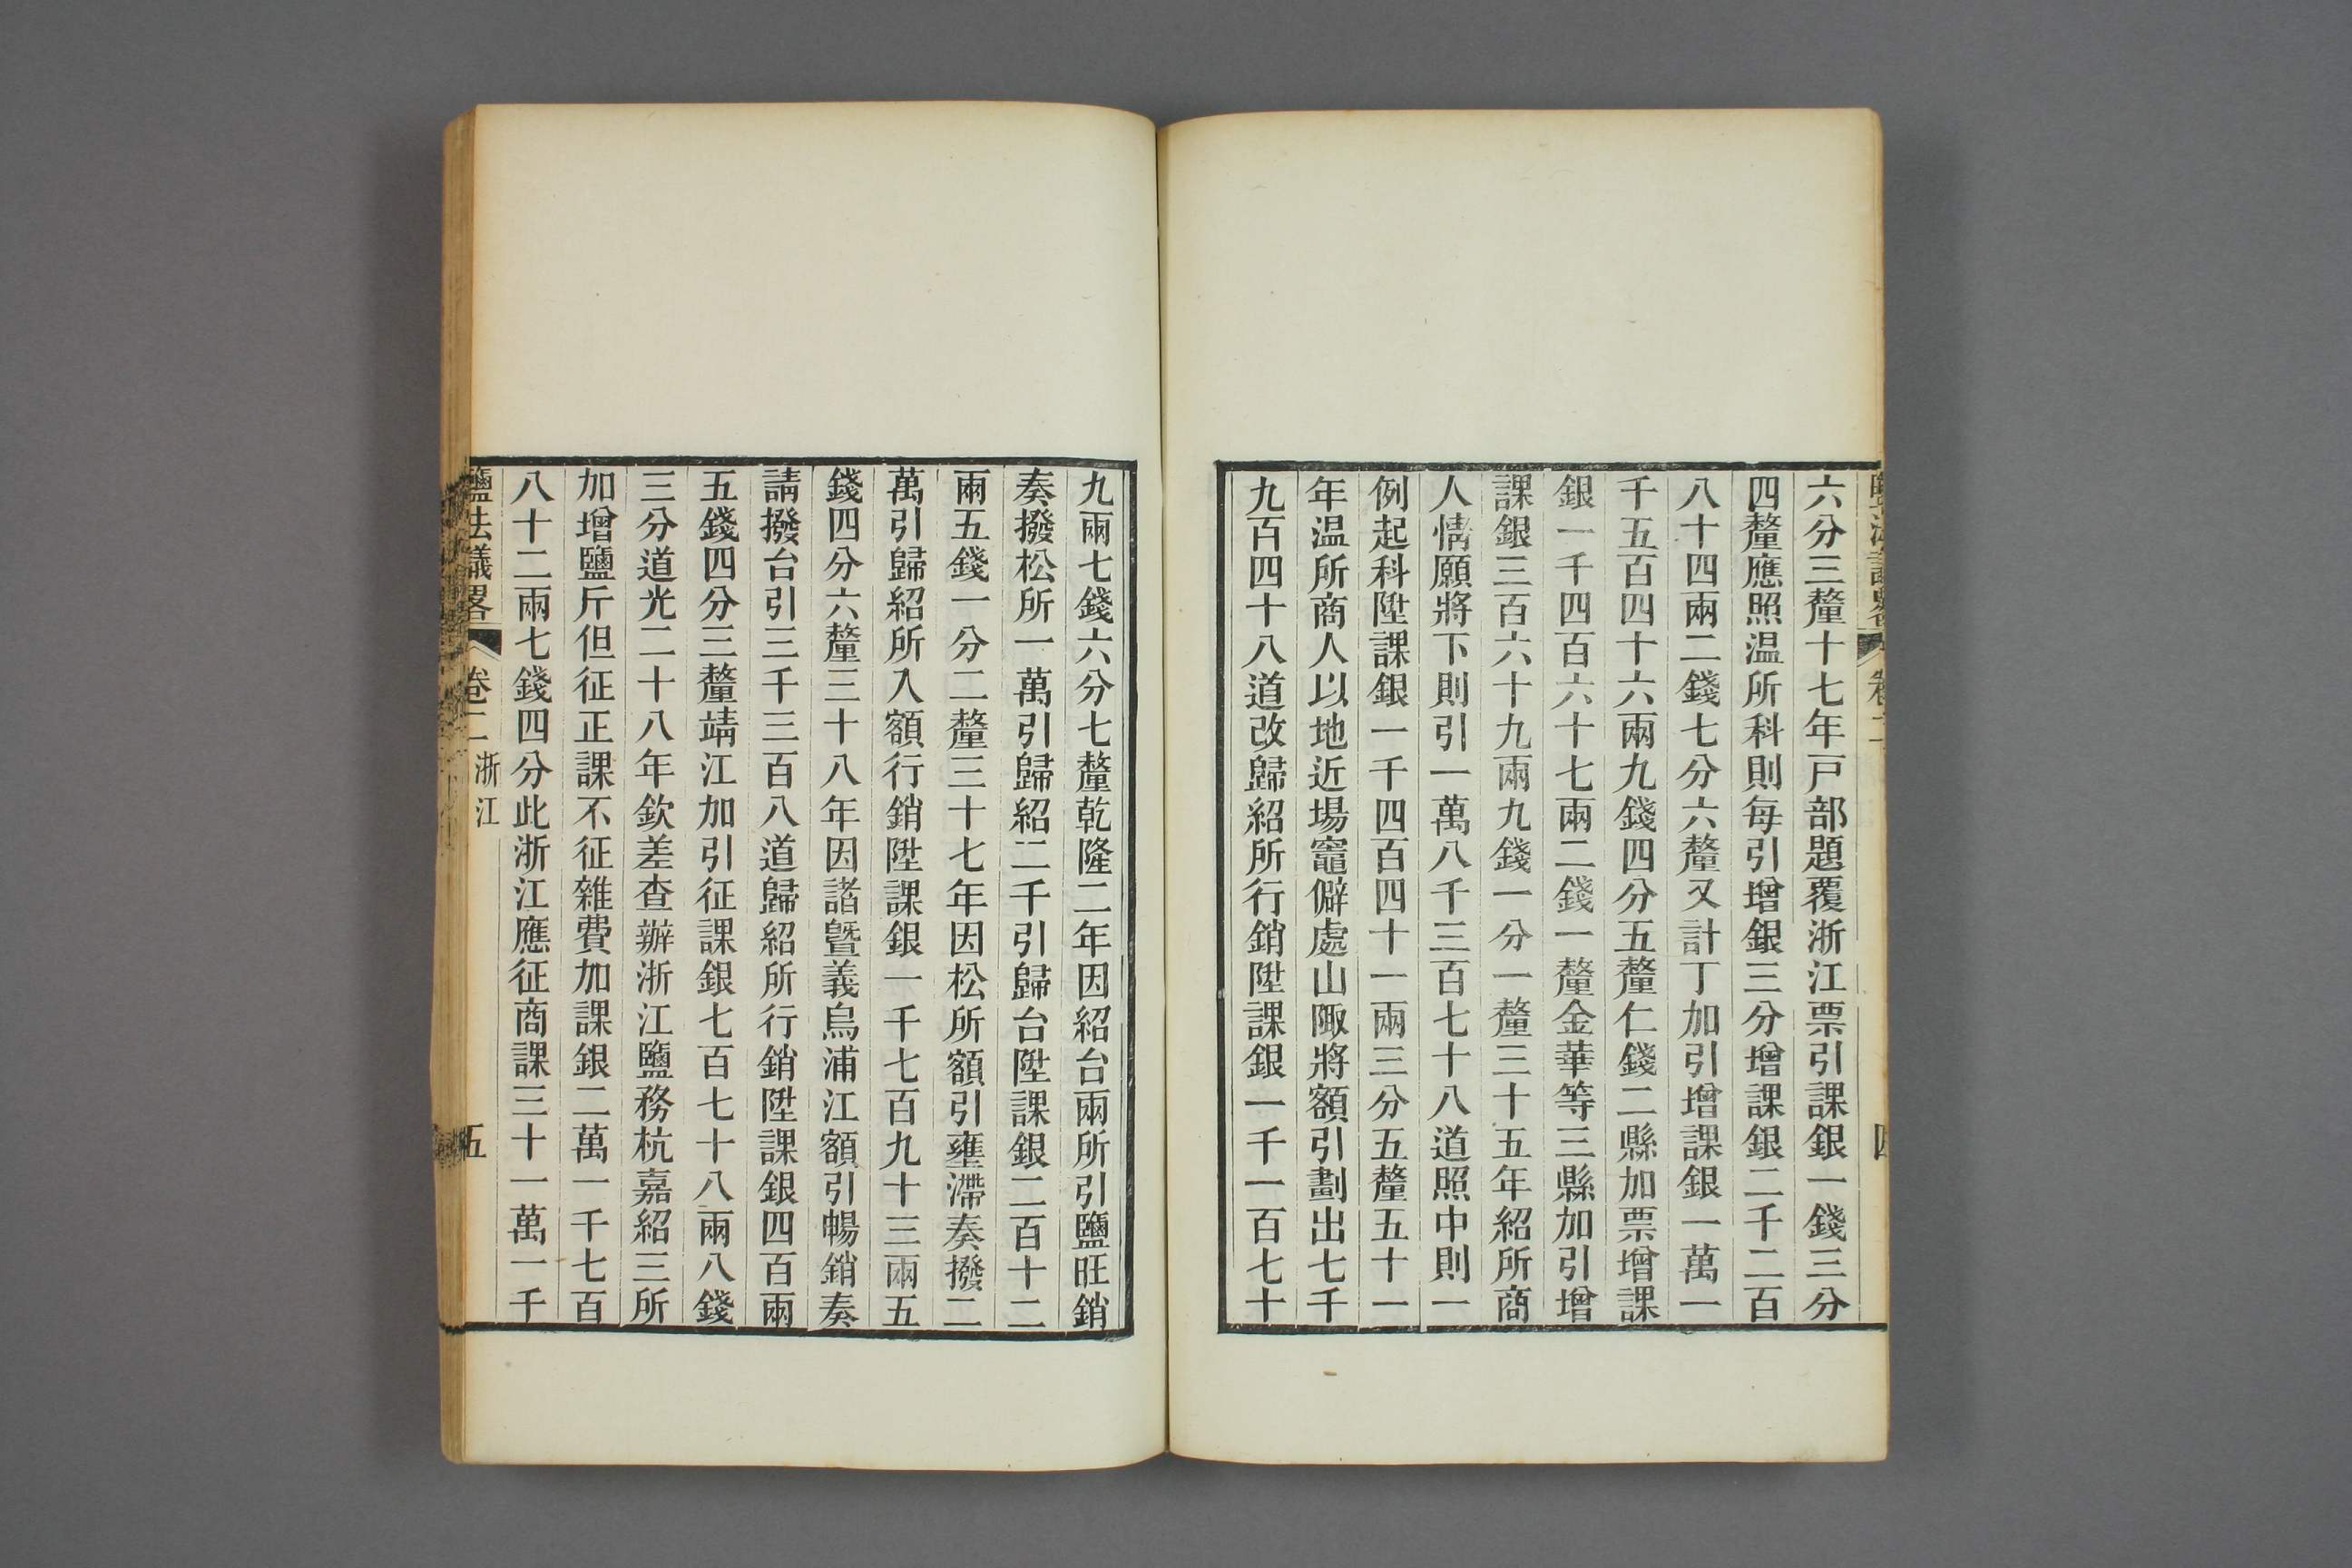 六分三釐十七年戸部題覆浙江票引課銀一錢三分
四釐應照温所科則每引增銀三分增課銀二千二百
八十四兩二錢七分六釐又計丁加引增課銀一萬一
千五百四十六兩九錢四分五釐仁錢二縣加票增課
銀一千四百六十七兩二錢一釐金華等三縣加引增
課銀三百六十九兩九錢一分一釐三十五年紹所商
人情願將下則引一萬八千三百七十八道照中則一
例起科陞課銀一千四百四十一兩三分五釐五十一
年温所商人以地近場竈僻處山陬將額引劃出七千
九百四十八道改歸紹所行銷陞課銀一千一百七十
九兩七錢六分七釐乾隆二年因紹台兩所引鹽旺銷
奏撥松所一萬引歸紹二千引歸台陞課銀二百十二
兩五錢一分二釐三十七年因松所額引壅滯奏撥二
萬引歸紹所入額行銷陞課銀一千七百九十三兩五
錢四分六釐三十八年因諸曁義烏浦江額引暢銷奏
請撥台引三千三百八道歸紹所行銷陞課銀四百兩
五錢四分三釐靖江加引征課銀七百七十八兩八錢
三分道光二十八年欽差查辦浙江鹽務杭嘉紹三所
加增鹽斤但征正課不征雜費加課銀二萬一千七百
八十二兩七錢四分此浙江應征商課三十一萬一千
鹽法議畧 卷二 浙江 五